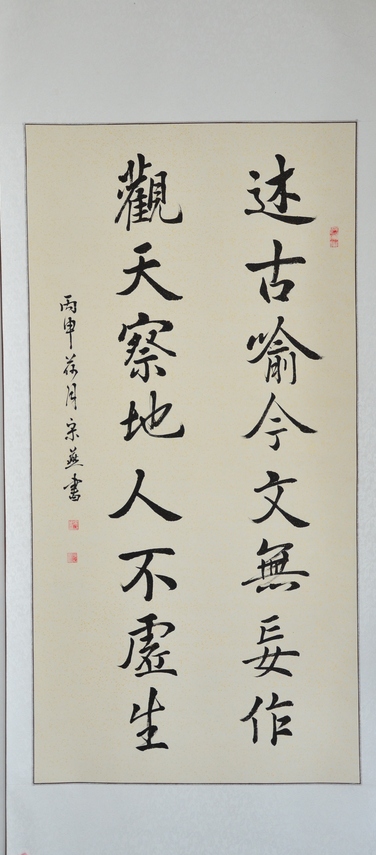 述古喻今文無妄作
觀天察地人不虛生
丙申荷月宋燕書